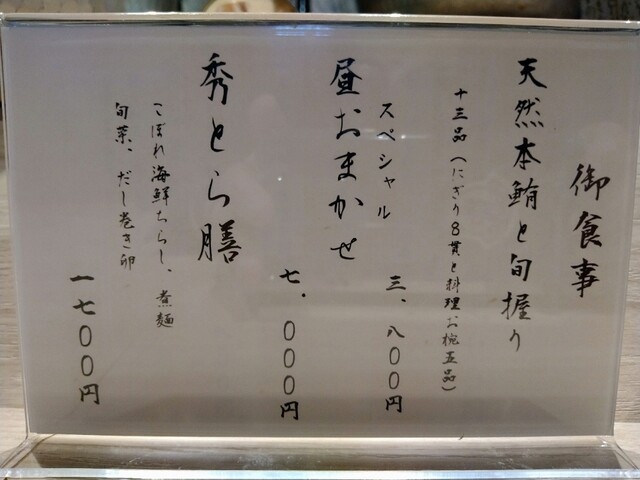 御食事
天然本鮪と旬握り
十三品(にぎり8貫と料理お椀五品)
三、八〇〇円
スペシャル
昼おまかせ
七、〇〇〇円
秀とら膳
こぼれ海鮮ちらし、煮麺
旬菜、だし巻き卵
一七〇〇円